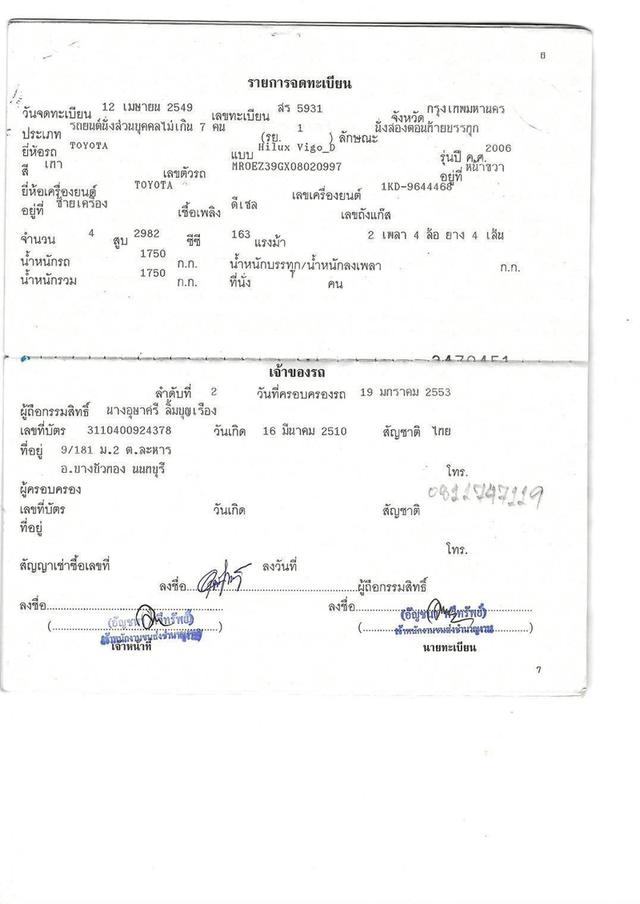 6
รายการจดทะเบียน
วันจดทะเบียน 12 เมษายน 2549 เลขทะเบียน สร 5931 จังหวัด กรุงเทพมหานคร
ประเภท รถยนต์นั่งส่วนบุคคลไม่เกิน 7 คน (รย. 1 ) ลักษณะ นั่งสองตอนท้ายบรรทุก
ยี่ห้อรถ TOYOTA แบบ Hilux Vigo_D รุ่นปี ค.ศ. 2006
สี เทา เลขตัวรถ MROEZ39GX08020997 อยู่ที่ หน้าขวา
ยี่ห้อเครื่องยนต์ TOYOTA เลขเครื่องยนต์ 1KD-9644468
อยู่ที่ ซ้ายเครื่อง เชื้อเพลิง ดีเซล เลขถังแก๊ส
จำนวน 4 สูบ 2982 ซีซี 163 แรงม้า 2 เพลา 4 ล้อ ยาง 4 เส้น
น้ำหนักรถ 1750 ก.ก. น้ำหนักบรรทุก/น้ำหนักลงเพลา ก.ก.
น้ำหนักรวม 1750 ก.ก. ที่นั่ง 7 คน
เจ้าของรถ
ลำดับที่ 2 วันที่ครอบครองรถ 19 มกราคม 2553
ผู้ถือกรรมสิทธิ์ นางอุษาศรี ลิ้มบุญเรือง
เลขที่บัตร 3110400924378 วันเกิด 16 มีนาคม 2510 สัญชาติ ไทย
ที่อยู่ 9/181 ม.2 ต.ละหาร
อ.บางบัวทอง นนทบุรี โทร.
ผู้ครอบครอง 0811747119
เลขที่บัตร วันเกิด สัญชาติ
ที่อยู่
โทร.
สัญญาเช่าซื้อเลขที่ ลงวันที่
ลงชื่อ ผู้ถือกรรมสิทธิ์
ลงชื่อ ลงชื่อ
เจ้าพนักงานขนส่งชำนาญงาน เจ้าพนักงานขนส่งชำนาญงาน
เจ้าหน้าที่ นายทะเบียน
7